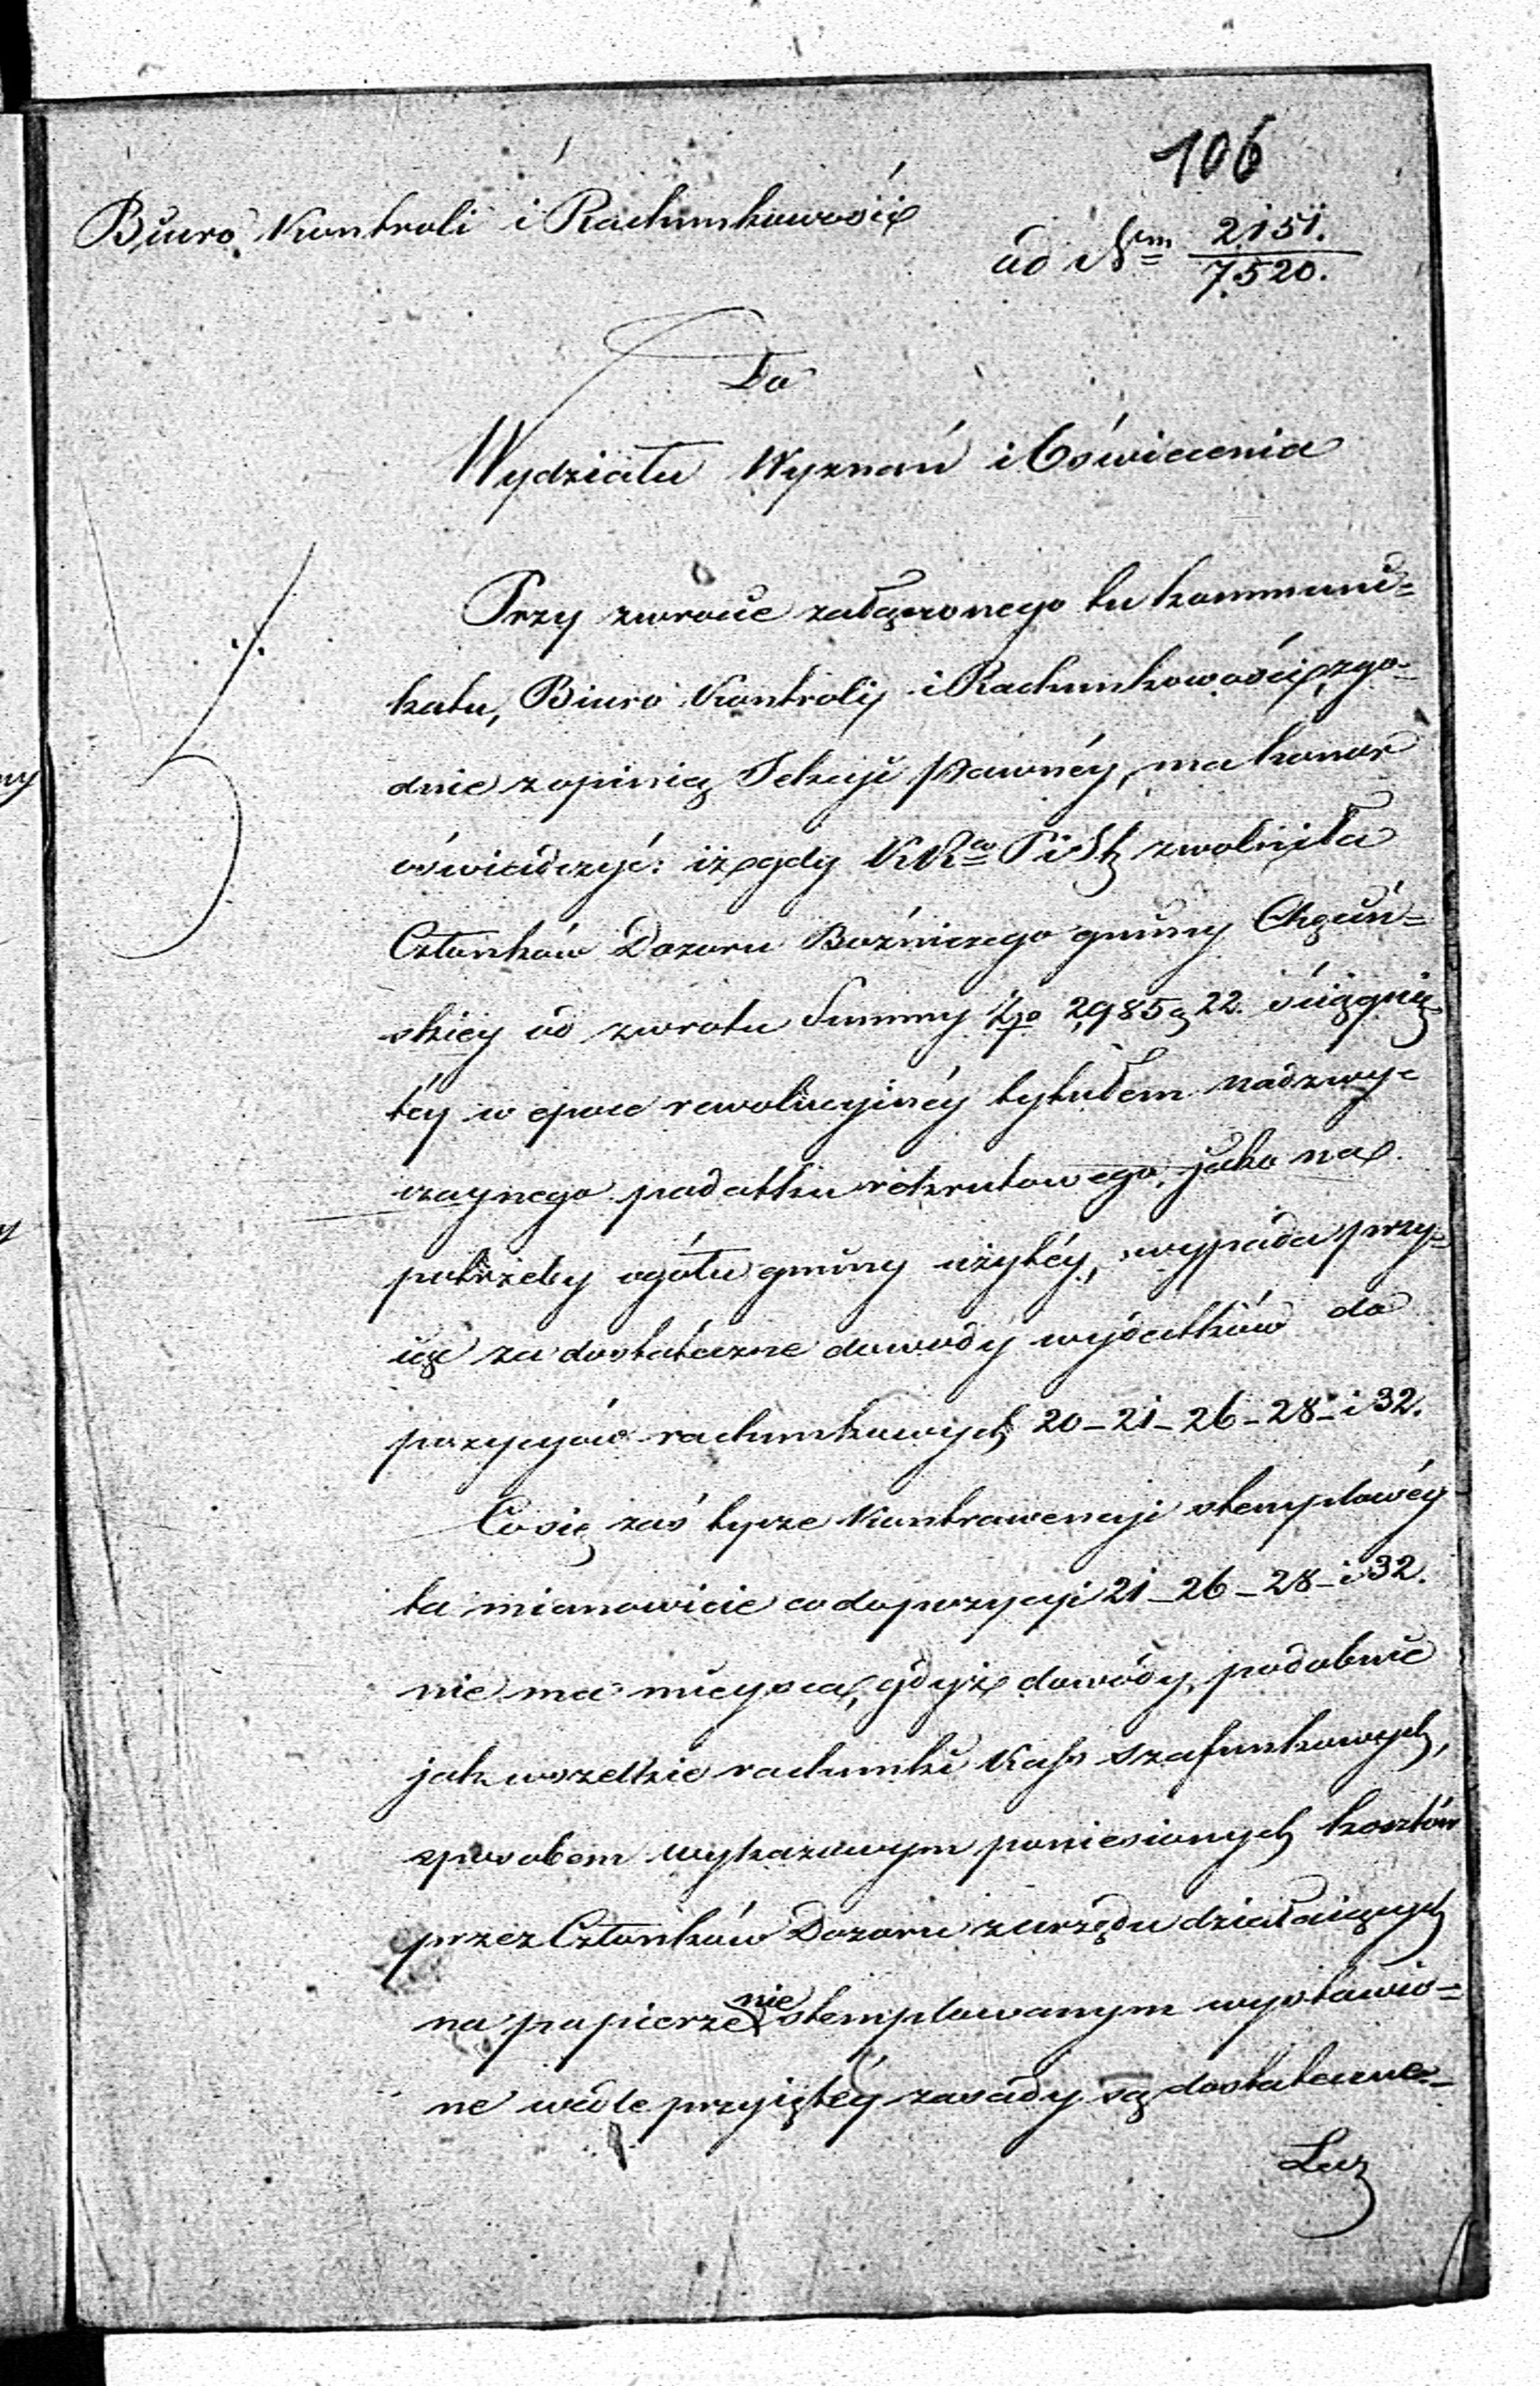 106
Biuro Kontroli i Rachunkowości
ad Nrm 2151.
7520.
Do
Wydziału Wyznań i Oświecenia
Przy zwrocie załączonego tu kommuni=
katu, Biuro Kontroly i Rachunkowości, zgo=
dnie z opinią Sekcyi Prawnéy, ma honor
oświadczyć: iż gdy KR P i Sk zwolniła
Członków Dozoru Bożniczego gminy Chęciń=
skiey od zwrotu Summy Złp 2985 g 22. ściągnię
téy w epoce rewolucyinéy tytułem nadzwy=
czaynego podatku rekrutowego, jako na
potrzeby ogółu gminy użytéy, wypada przy=
iąć za dostateczne dowody wydatków do
pozycyów rachunkowych 20 – 21 – 26 – 28 – i 32.
Co się zaś tycze Kontrawencyi stemplowéy
ta mianowicie co do pozycyi 21 – 26 – 28 – i 32.
nie ma mieysca, gdyż dowody, podobnie
jak wszelkie rachunki Kass szafunkowych,
sposobem wykazowym poniesionych kosztów
przez Członków Dozoru z urzędu działaiących
na papierze nie stemplowanym wystawio=
ne wedle przyiętéy zasady są dostateczne.–
Lecz